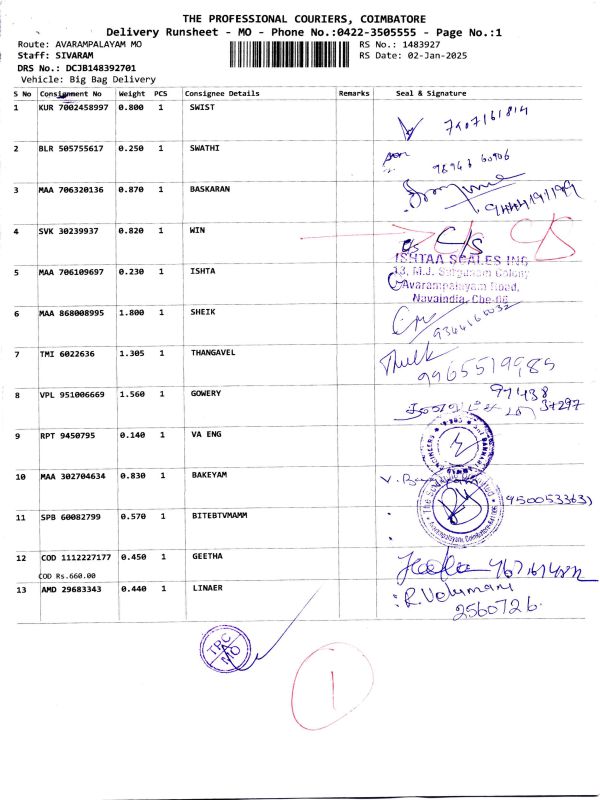 THE PROFESSIONAL COURIERS, COIMBATORE
Delivery Runsheet - MO - Phone No.:0422-3505555 - Page No.:1
Route: AVARAMPALAYAM MO RS No.: 1483927
Staff: SIVARAM RS Date: 02-Jan-2025
DRS No.: DCJB148392701
Vehicle: Big Bag Delivery
S No Consignment No Weight PCS Consignee Details Remarks Seal & Signature
1 KUR 7002458997 0.800 1 SWIST
2 BLR 505755617 0.250 1 SWATHI
3 MAA 706320136 0.870 1 BASKARAN
4 SVK 30239937 0.820 1 WIN C/S C/S
ISHTAA SCALES INC
13, M.J. Colony
5 MAA 706109697 0.230 1 ISHTA Avarampalayam Road,
Navaindia,
6 MAA 868008995 1.800 1 SHEIK
7 TMI 6022636 1.305 1 THANGAVEL 9965519985
8 VPL 951006669 1.560 1 GOWERY 97438
37297
9 RPT 9450795 0.140 1 VA ENG
10 MAA 302704634 0.830 1 BAKEYAM
11 SPB 60082799 0.570 1 BITEBTVMAMM
12 COD 1112227177 0.450 1 GEETHA
COD Rs.660.00
13 AMD 29683343 0.440 1 LINAER R. Velumani
2560726
TPC
MO
1